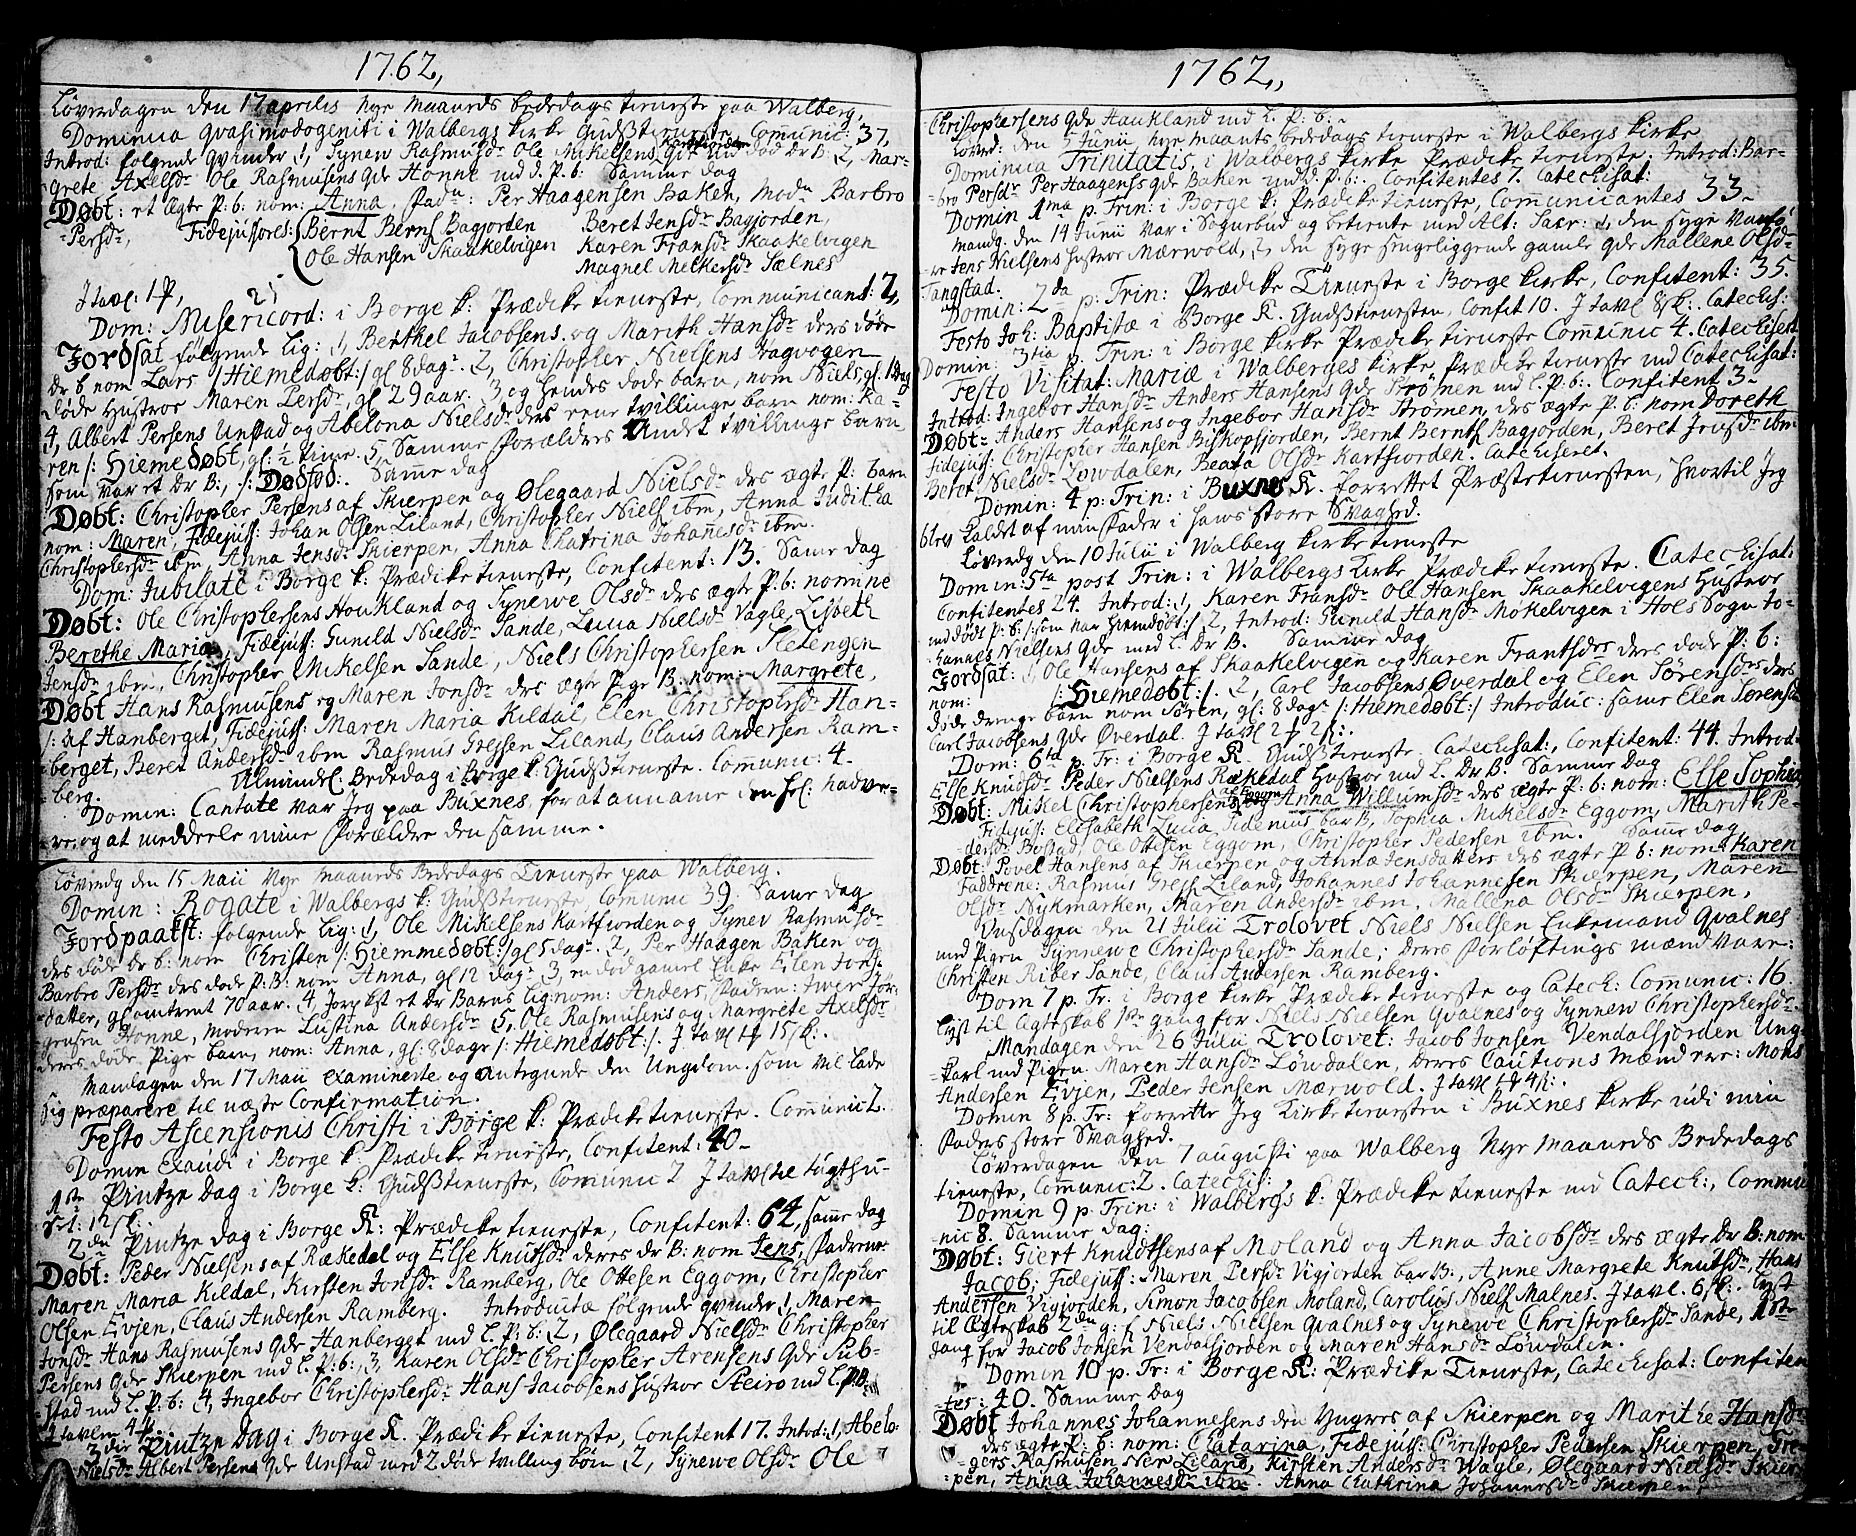 1762,
Løverdagen den 17 aprilis Nye Maaneds bededags tieneste paa Walberg,
Dominica Qvasimodogeniti i Walbergs kirke Gudstieneste, Comunic: 37,
Introd: følgende qvinder 1, Synew Rasmusdr Ole Mikelsens Kartfiorden med død Dr B: 2, Mar-
grete Axelsdr Ole Rasmusens qde Honne med d. P. b: Samme dag
Døbt: et ægte P: b: nom: Anna. Padr: Per Haagensen Baken, Modr Barbro
Persdr, Fidejussores: Bernt Berns Bagjorden Beret Jensdr Bagjorden,
Ole Hansen Skaakelvigen Karen Fransdr Skaakelvigen
Magnel Melkersdr Sælnes
J tavl: 1 ₰,
Dom: Misericord: i Borge k: Prædike tieneste, Communicant: 12,
Jordsat følgende Lig: 1, Berthel Jacobsens og Marith Hansdr ders døde
Dr b nom Lars /: Hiemedøbt :/ gl 8 dagr. 2, Christopher Nielsens Kragvogen
døde Hustroe Maren Lersdr, gl 29 aar. 3 og hendes døde barn, nom Niels, gl. 1 dag
4, Albert Persens Unstad og Abelona Nielsdr ders eene tvillinge barn nom: Ka-
ren /: Hiemedøbt, gl: ½ time. 5, Samme forældres Andet tvillinge barn
som var et Dr B:, /: Dødfød:. Same dag
Døbt: Christopher Persens af Skierpen og Ølegaard Nielsdr des ægte P: barn
nom: Maren, Fidejuss: Johan Olsen Liland, Christopher Niels ibm, Anna Juditha
Christophersdr ibm, Anna Jensdr Skierpen, Anna Chatrina Johanesdr ibm.
Dom: Jubilate i Borge k: Prædike tieneste, Confitent: 13. Same dag
Døbt: Ole Christophersens Houkland og Synewe Olsdr des ægte P: b: nomine
Berethe Maria, Fidejuss: Gunild Nielsdr Sande, Lucia Nielsdr Vagle, Lisbeth
Jensdr ibm, Christopher Mikelsen Sande, Niels Christophersen Sletengen
Døbt Hans Rasmusens og Maren Jonsdr des ægte Pige B: nom: Margrete,
/: af Hanberget, Fidejuss: Maren Maria Kildal, Elen Christophersdr Han-
berget, Beret Andersdr ibm Rasmus Gregsen Liland, Claus Andersen Ram-
berg. Almindel: Bededag i Borge k: Gudstieneste. Comunic: 4-
Domin: Cantate var Jeg paa Buxnes for at anname den Hel: nadve-
re: og at meddeele mine forældre den samme.
Løverdg den 15 Maii Nye Maaneds Bededags Tieneste paa Walberg.
Domin: Rogate i Walbergs k: Gudstieneste, Comunic 39. Same dag
Jordpaakst: følgende Lig: 1, Ole Mikelsens Kartfiorden og Synev Rasmusdr
des døde Dr b: nom Christen /: Hiemmedøbt :/ gl 5 dagr. 2, Per Haagen Baken og
Barbro Persdr des døde P: B: nom Anna, gl 12 dagr 3, en død gamel Enke Elen Jons-
datter, gl omtrent 70 aar. 4, Jordpaakst et Dr Barns Lig nom: Anders, Padren: Iwer Jør-
gensen Honne, moderen Lustina Andersdr 5, Ole Rasmusens og Margrete Axelsdr
deres døde Pige barn, nom: Anna, gl: 8 dage /: Hiemedøbt :/. J tavl 1 ₰ 15 sk:.
Mandagen den 17 Maii examinerte og antegnede den Ungdom. som vil lade
sig præparere til næste Confirmation.
Festo Ascensionis Christi i Borge k: Prædike tieneste. Comunic 2.
Domin Exaudi i Borge k: Prædike tieneste, Confitent: 40-
1ste Pintze Dag i Borge k: Gudstieneste, Comunic 2 J tavl til tugthu-
set: 12 sk:
2den Pintze dag i Borge K: Prædike tieneste, Confitent: 64, same dag
Døbt: Peder Nielsens af Rækedal og Else Knutsdr deres Dr B: nom Jens, Padrene:
Maren Maria Kildal, Kirsten Jonsdr Ramberg, Ole Ottesen Eggom, Christopher
Olsen Evjen, Claus Andersen Ramberg. Introducta følgende qvinder 1, Maren
Jonsdr Hans Rasmusens qde Hanberget med L. P: b: 2, Ølegaard Nielsdr Christopher
Persens qde Skierpen med L. P: b:, 3, Karen Olsdr Christopher Arensens qde Sub-
stad med L. P: b: 4, Ingebor Christophersdr Hans Jacobsens hustroe Steiro med L. P: B:
J tavlen 4 sk.
3die Pintze Dag i Borge K. Prædike tieneste, Confitent 17. Introd: 1, Abelo-
Nielsdr Albert Persens qde Unstad med 2 døde tvilling børn 2, Synewe Olsdr Ole
1762,
Christophersens qde Haukland med L. P: b:.
Løverd: den 5 Junii, nye maanets bededags tieneste i Walbergs kirke
Dominica Trinitatis, i Walbergs kirke Prædike tieneste. Introd: Bar-
bro Persdr Per Haagenss qde Baken med d. P. b:. Confitentes 7. Catechisat:
Domin 1ma p. Trin: i Borge k: Prædike tieneste, Comunicantes 33-
Mandg. den 14 Junii var i Sognebud og betiente med Alt: Sacr: 1, den syge
Jens Nielsens hustroe Mærwold, 2, den syge sengeliggende gamle qde Mallene Olsdr
Tangstad.
Domin: 2da p. Trin: Prædike Tieneste i Borge kirke, Confitent: 35.
Festo Joh: Baptistæ i Borge K. Gudstienesten, Confit 10. J tavl 8 sk. Catechis:
Domin: 3tia p. Trin: i Borge kirke Prædike tieneste Comunic 4. Catechisat
Festo Visitat: Mariæ i Walberges kirke Prædike tieneste med Catechisat:
Introd: Ingebor Hansdr Anders Hansens qde Strømen med L. P: b:. Confitent 3-
Døbt: Anders Hansens og Ingebor Hansdr Strømen, des ægte P. b: nom Doreth
fidejuss: Christopher Hansen Biskopfjorden, Bernt Bernts Bagjorden, Beret Jensdr ibm
Beret Nielsdr Løwdalen, Beata Olsdr Kartfiorden. Catechiseret.
Domin: 4 p: Trin: i Buxnes K. forrettet Præstetienesten, hvortil Jeg
blev kaldet af min fader i hans store Svaghed.
Løverdg den 10 Julii i Walberg kirketieneste
Domin: 5ta post Trin: i Walbergs Kirke Prædike tieneste. Catechisat:
Confitentes 24. Introd: 1, Karen Fransdr Ole Hansen Skaakelvigens Hustroe
med dødt P: b: /: som var hiemdøbt :/ 2, Introd: Gunild Hansdr Mokelvigen i Hols Sogn Jo-
hannes Nielsens qde med L. Dr B. Samme dag
Jordsat: 1, Ole Hansens af Skaakelvigen og Karen Frantsdrs ders døde P: b:
nom: /: Hiemedøbt :/. 2, Carl Jacobsens Øverdal og Elen Sørensdrs ders
døde drenge barn nom Søren, gl: 8 dagr /: Hiemedøbt :/ Introduc: same Elen Sørensdr
Carl Jacobsens qde Øverdal. J tavl 2 ₰ 2 sk:.
Dom: 6ta p. Tr: i Borge K. Gudstieneste. Catechisat:, Confitent: 44. Introd:
Else Knudsdr Peder Nielsens Rækedal Hustroe med L. Dr B. Same Dag
Døbt: Mikel Christophersens af Eggom og Anna Willumsdr des ægte P: b: nom: Else Sophia
Fidejuss: Elisabeth Lucia Fidenius bar B:, Sophia Mikelsdr Eggom, Marith Pe-
dersdr Bostad, Ole Ottesen Eggom, Christopher Pedersen ibm. Same dag
Døbt: Povel Hansens af Skierpen og Anna Jensdatters des ægte P b: nom: Karen
Faddrene: Rasmus Gregs Liland, Johannes Johannesen Skierpen, Maren
Olsdr Nykmarken, Maren Andersdr ibm, Mallena Olsdr Skierpen,
Onsdagen den 21 Julii Trolovet Niels Nielsen Enkemand Qvalnes
med Pigen Synnewe Christophersdr Sande; deres forløftings mænd vare:
Christen Riber Sande, Claus Andersen Ramberg.
Dom 7 p. Tr. i Borge kirke Prædike tieneste og Catech: Communic: 16
Lyst til Ægteskab 1ste gang for Niels Nielsen Qvalnes og Synnew Christophersdr
Mandagen den 26 Julii Trolovet: Jacob Jonsen Vendalsjorden Ung-
karl med Pigen Maren Hansdr Løwdalen, deres Cautions Mænd ere: Mons
Andersen Evjen, Peder Jensen Mærwold. J tavl 1 ₰ 4 sk:.
Domin 8 p. Tr: forrette Jeg Kirketienesten i Buxnes kirke udi min
Faders store Svaghed.
Løverdagen den 7 augusti paa Walberg Nye Maaneds Bededags
tieneste, Communic: 2. Catechis:
Domin 9 p. Trin: i Walbergs k: Prædike tieneste med Catech:, Commu-
nic 8. Samme dag:
Døbt: Giert Knudtsens af Moland og Anna Jacobsdr des ægte Dr B: nom:
Jacob: Fidejuss: Maren Persdr Vigjorden bar B:, Anne Margrete Knutsdr, Hans
Andersen Vigjorden, Simon Jacobsen Moland, Carolus Niels Malnes. J tavl. 6 sk:. Lyst
til Ægteskab 2den g: f Niels Nielsen Qvalnes og Synewe Christophersdr Sande, 1ste
gang for Jacob Jonsen Vendalsfjorden og Maren Hansdr Løwdalen.
Domin 10 p. Tr: i Borge K: Prædike Tieneste, Catechisat: Confiten-
tes: 40. Samme Dag
Døbt Johannes Johannesens den Yngres af Skierpen og Marithe Hansdr
des ægte P: b: nom: Chatarina, Fidejuss: Christopher Pedersen Skierpen, Gre-
gers Rasmusen Ner Liland, Kirsten Andersdr Wagle, Ølegaard Nielsdr Skier-
pen, Anna Johannesdr ibm. Anna Chathrina Johannesdr Skierpen,